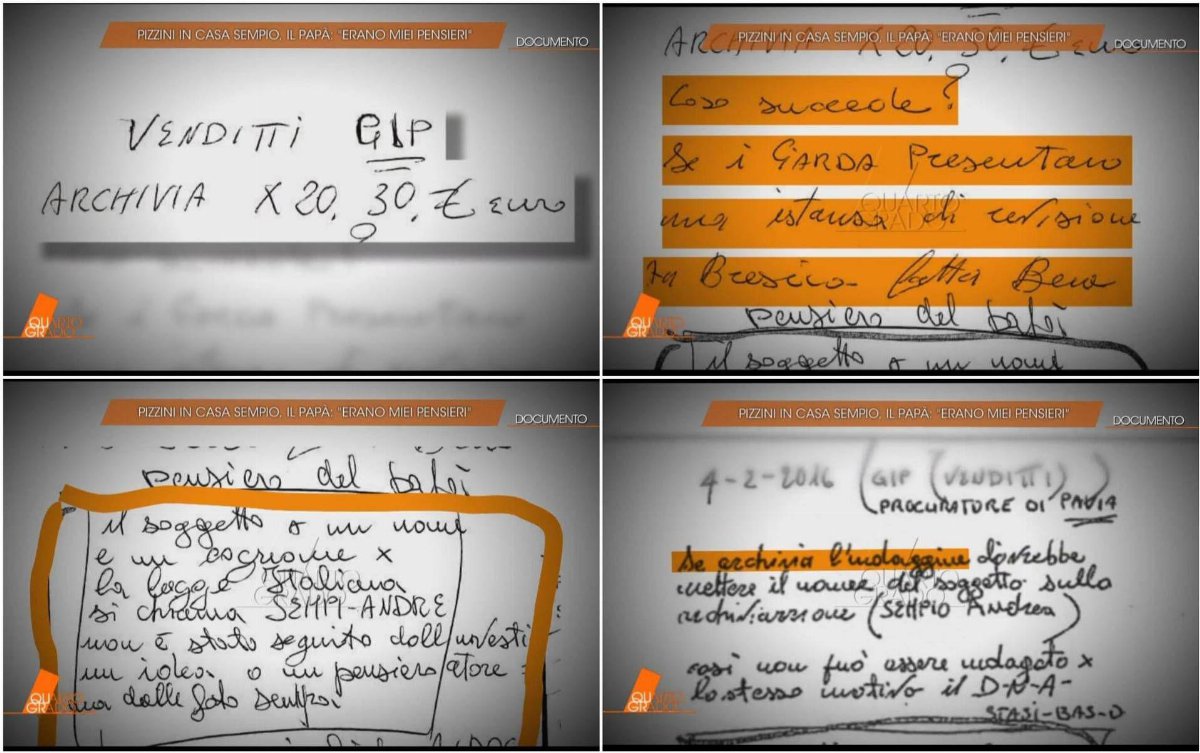 PIZZINI IN CASA SEMPIO, IL PAPÀ: "ERANO MIEI PENSIERI"
DOCUMENTO
VENDITTI GIP
ARCHIVIA X 20. 30. € euro
QUARTO
GRADO
PIZZINI IN CASA SEMPIO, IL PAPÀ: "ERANO MIEI PENSIERI"
DOCUMENTO
ARCHIVIA X 20. 30. € euro
Cosa succede?
Se i GARDA Presentano
una istansa di revisione
Brescia fatta Bene
pensiero del
il soggetto a un nome
QUARTO
GRADO
QUARTO
GRADO
PIZZINI IN CASA SEMPIO, IL PAPÀ: "ERANO MIEI PENSIERI"
DOCUMENTO
pensiero del
il soggetto a un nome
e un cognome x
la legge Italiana
si chiama SEMPI-ANDRE
non è stato seguito dall investi
un idea o un pensiero atore
ma dalle foto
QUARTO
GRADO
PIZZINI IN CASA SEMPIO, IL PAPÀ: "ERANO MIEI PENSIERI"
DOCUMENTO
4-2-2016 (GIP (VENDITTI))
(PROCURATORE DI PAVIA
Se archivia l'indaggine dovrebbe
mettere il nome del soggetto sulla
(SEMPIO Andrea)
così non può essere indagato x
lo stesso motivo il D-N-A-
STASI-BAS-D
QUARTO
GRADO